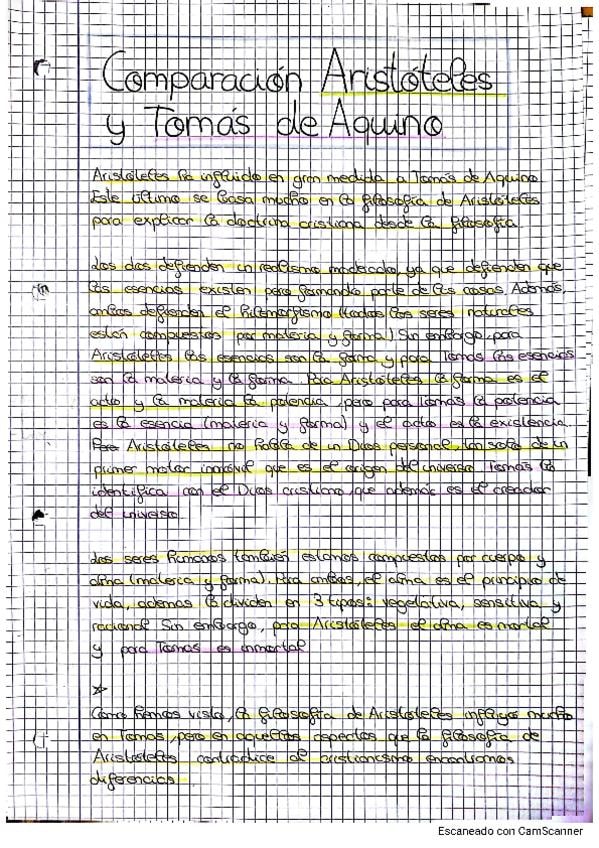 Comparación Aristóteles
y Tomás de Aquino
Aristóteles ha influido en gran medida a Tomás de Aquino
Este último se basa mucho en la filosofía de Aristóteles
para explicar la doctrina cristiana desde la filosofía
Los dos defienden un realismo moderado, ya que defienden que
las esencias existen pero formando parte de las cosas. Además,
ambos defienden el hilemorfismo (todos los seres naturales
están compuestos por materia y forma) Sin embargo, para
Aristóteles las esencias son la forma y para Tomás las esencias
son la materia y la forma. Para Aristóteles la forma es el
acto y la materia la potencia, pero para Tomás la potencia
es la esencia (materia y forma) y el acto es la existencia.
Pero Aristóteles no habla de un Dios personal, tan solo de un
primer motor inmóvil que es el origen del universo Tomás lo
identifica con el Dios cristiano, que además es el creador
del universo
Los seres humanos también estamos compuestos por cuerpo y
alma (materia y forma). Para ambos, el alma es el principio de
vida, además la dividen en 3 tipos: vegetativa, sensitiva y
racional Sin embargo, para Aristóteles el alma es mortal
y para Tomás es inmortal
Como hemos visto, la filosofía de Aristóteles influye mucho
en Tomás, pero en aquellos aspectos que la filosofía de
Aristóteles contradice al cristianismo encontramos
diferencias
Escaneado con CamScanner